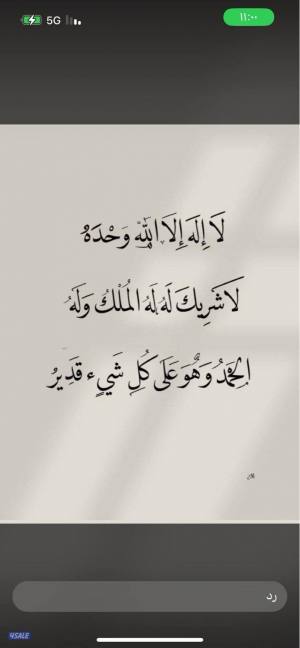 5G
١١:٠٠
لَا إِلَهَ إِلَّا اللَّه وَحْدَهُ
لَا شَرِيكَ لَهُ لَهُ المُلْكُ وَلَهُ
الحَمْدُ وَهُوَ عَلَى كُلِّ شَيْءٍ قَدِيرٌ
رد
4SALE